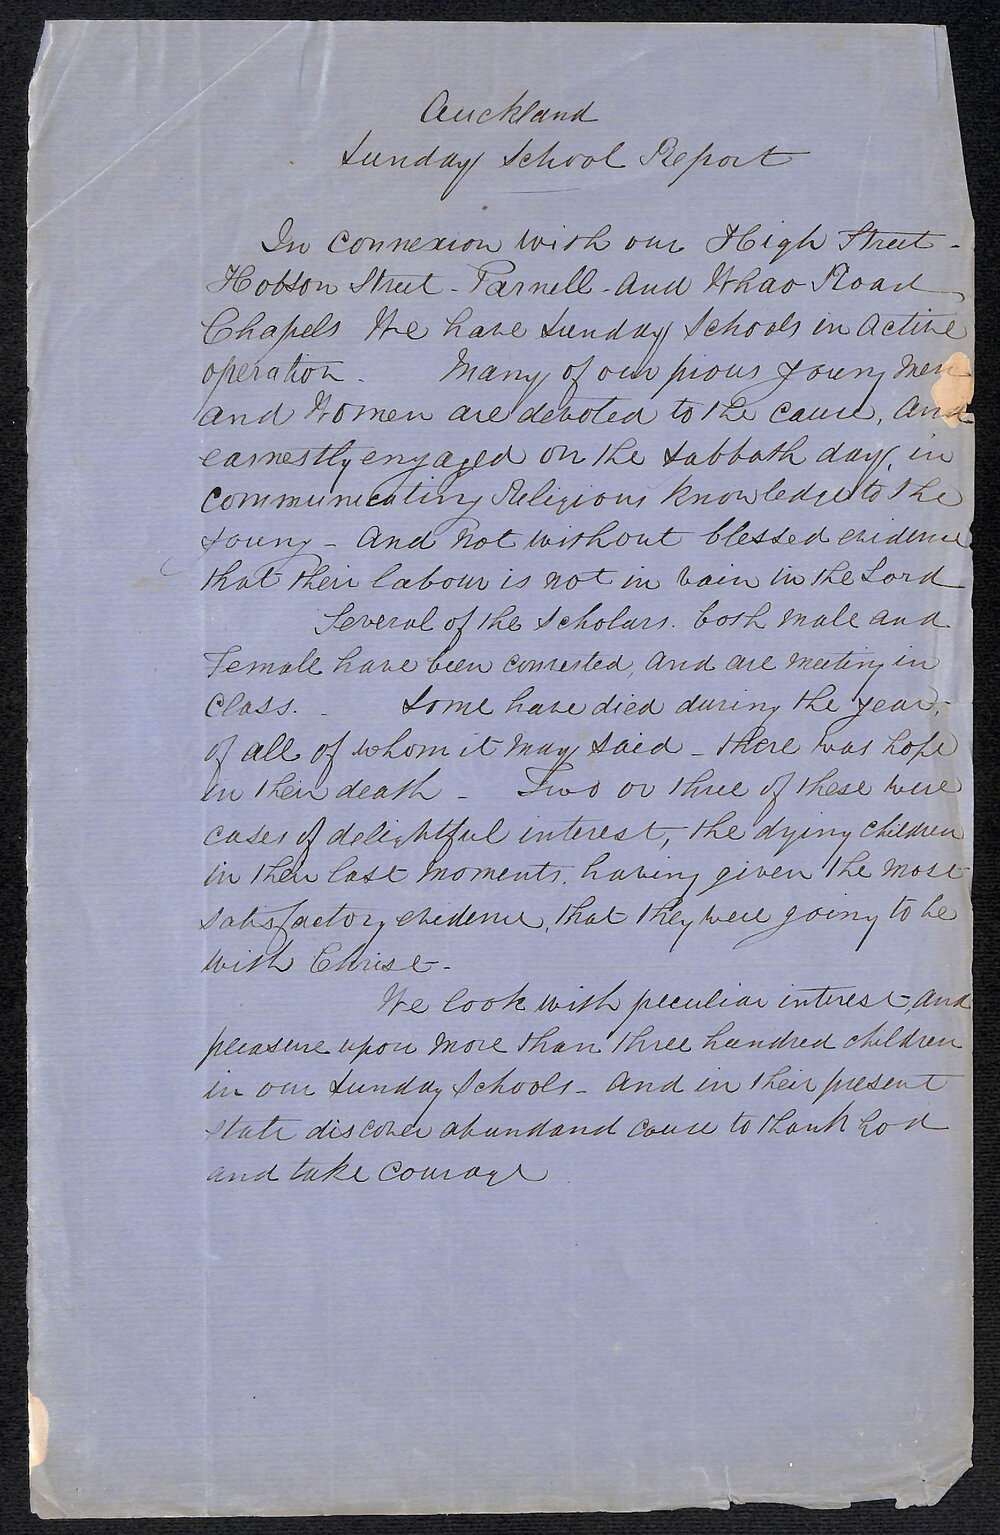 Auckland
Sunday School Report
In connexion with our High Street -
Hobson Street - Parnell - and Whao Road
Chapels We have Sunday Schools in active
operation. Many of our pious young Men
and Women are devoted to the cause, and
earnestly engaged on the Sabbath day, in
communicating Religious knowledge to the
young - And not without blessed evidence
that their labour is not in vain in the Lord
Several of the Scholars. both male and
Female have been converted, and are meeting in
Class. - Some have died during the year,
of all of whom it may said - there was hope
in their death - Two or three of these were
cases of delightful interest, the dying children
in their last moments, having given the most
satisfactory evidence, that they were going to be
with Christ -
We look with peculiar interest, and
pleasure upon more than three hundred children
in our Sunday Schools - And in their present
state discover abundand cause to thank God
and take courage